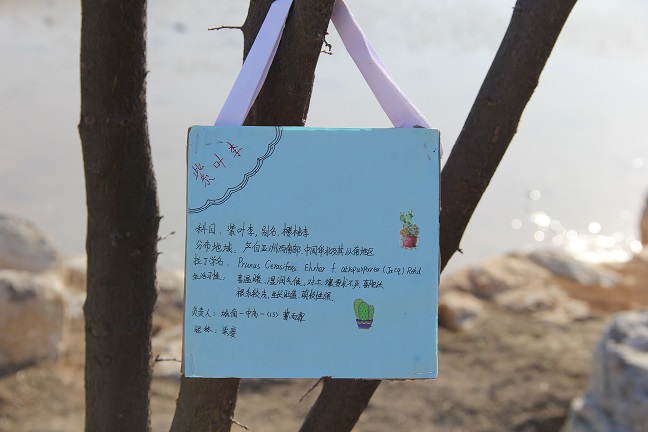 紫叶李
科目：紫叶李，别名：樱桃李
分布地域：产自亚洲西南部，中国华北及其以南地区
拉丁学名：Prunus Cerasifera Ehrhar f. atropurpurea (Jacq.) Rehd
生活习性：喜温暖、湿润气候，对土壤要求不严
根系较浅，生长旺盛，萌枝性强。
负责人：城南一中高一(15)
昵称：